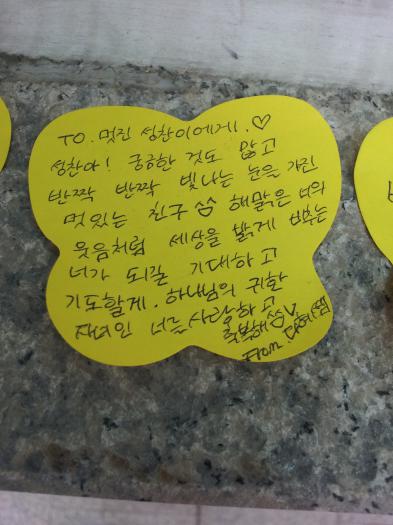 TO. 멋진 성찬이에게. ♡
성찬아! 궁금한 것도 많고
반짝 반짝 빛나는 눈을 가진
멋있는 친구 ^^ 해맑은 너의
웃음처럼 세상을 밝게 비추는
너가 되길 기대하고
기도할게. 하나님의 귀한
자녀인 너를 사랑하고
축복해^^♡
From.